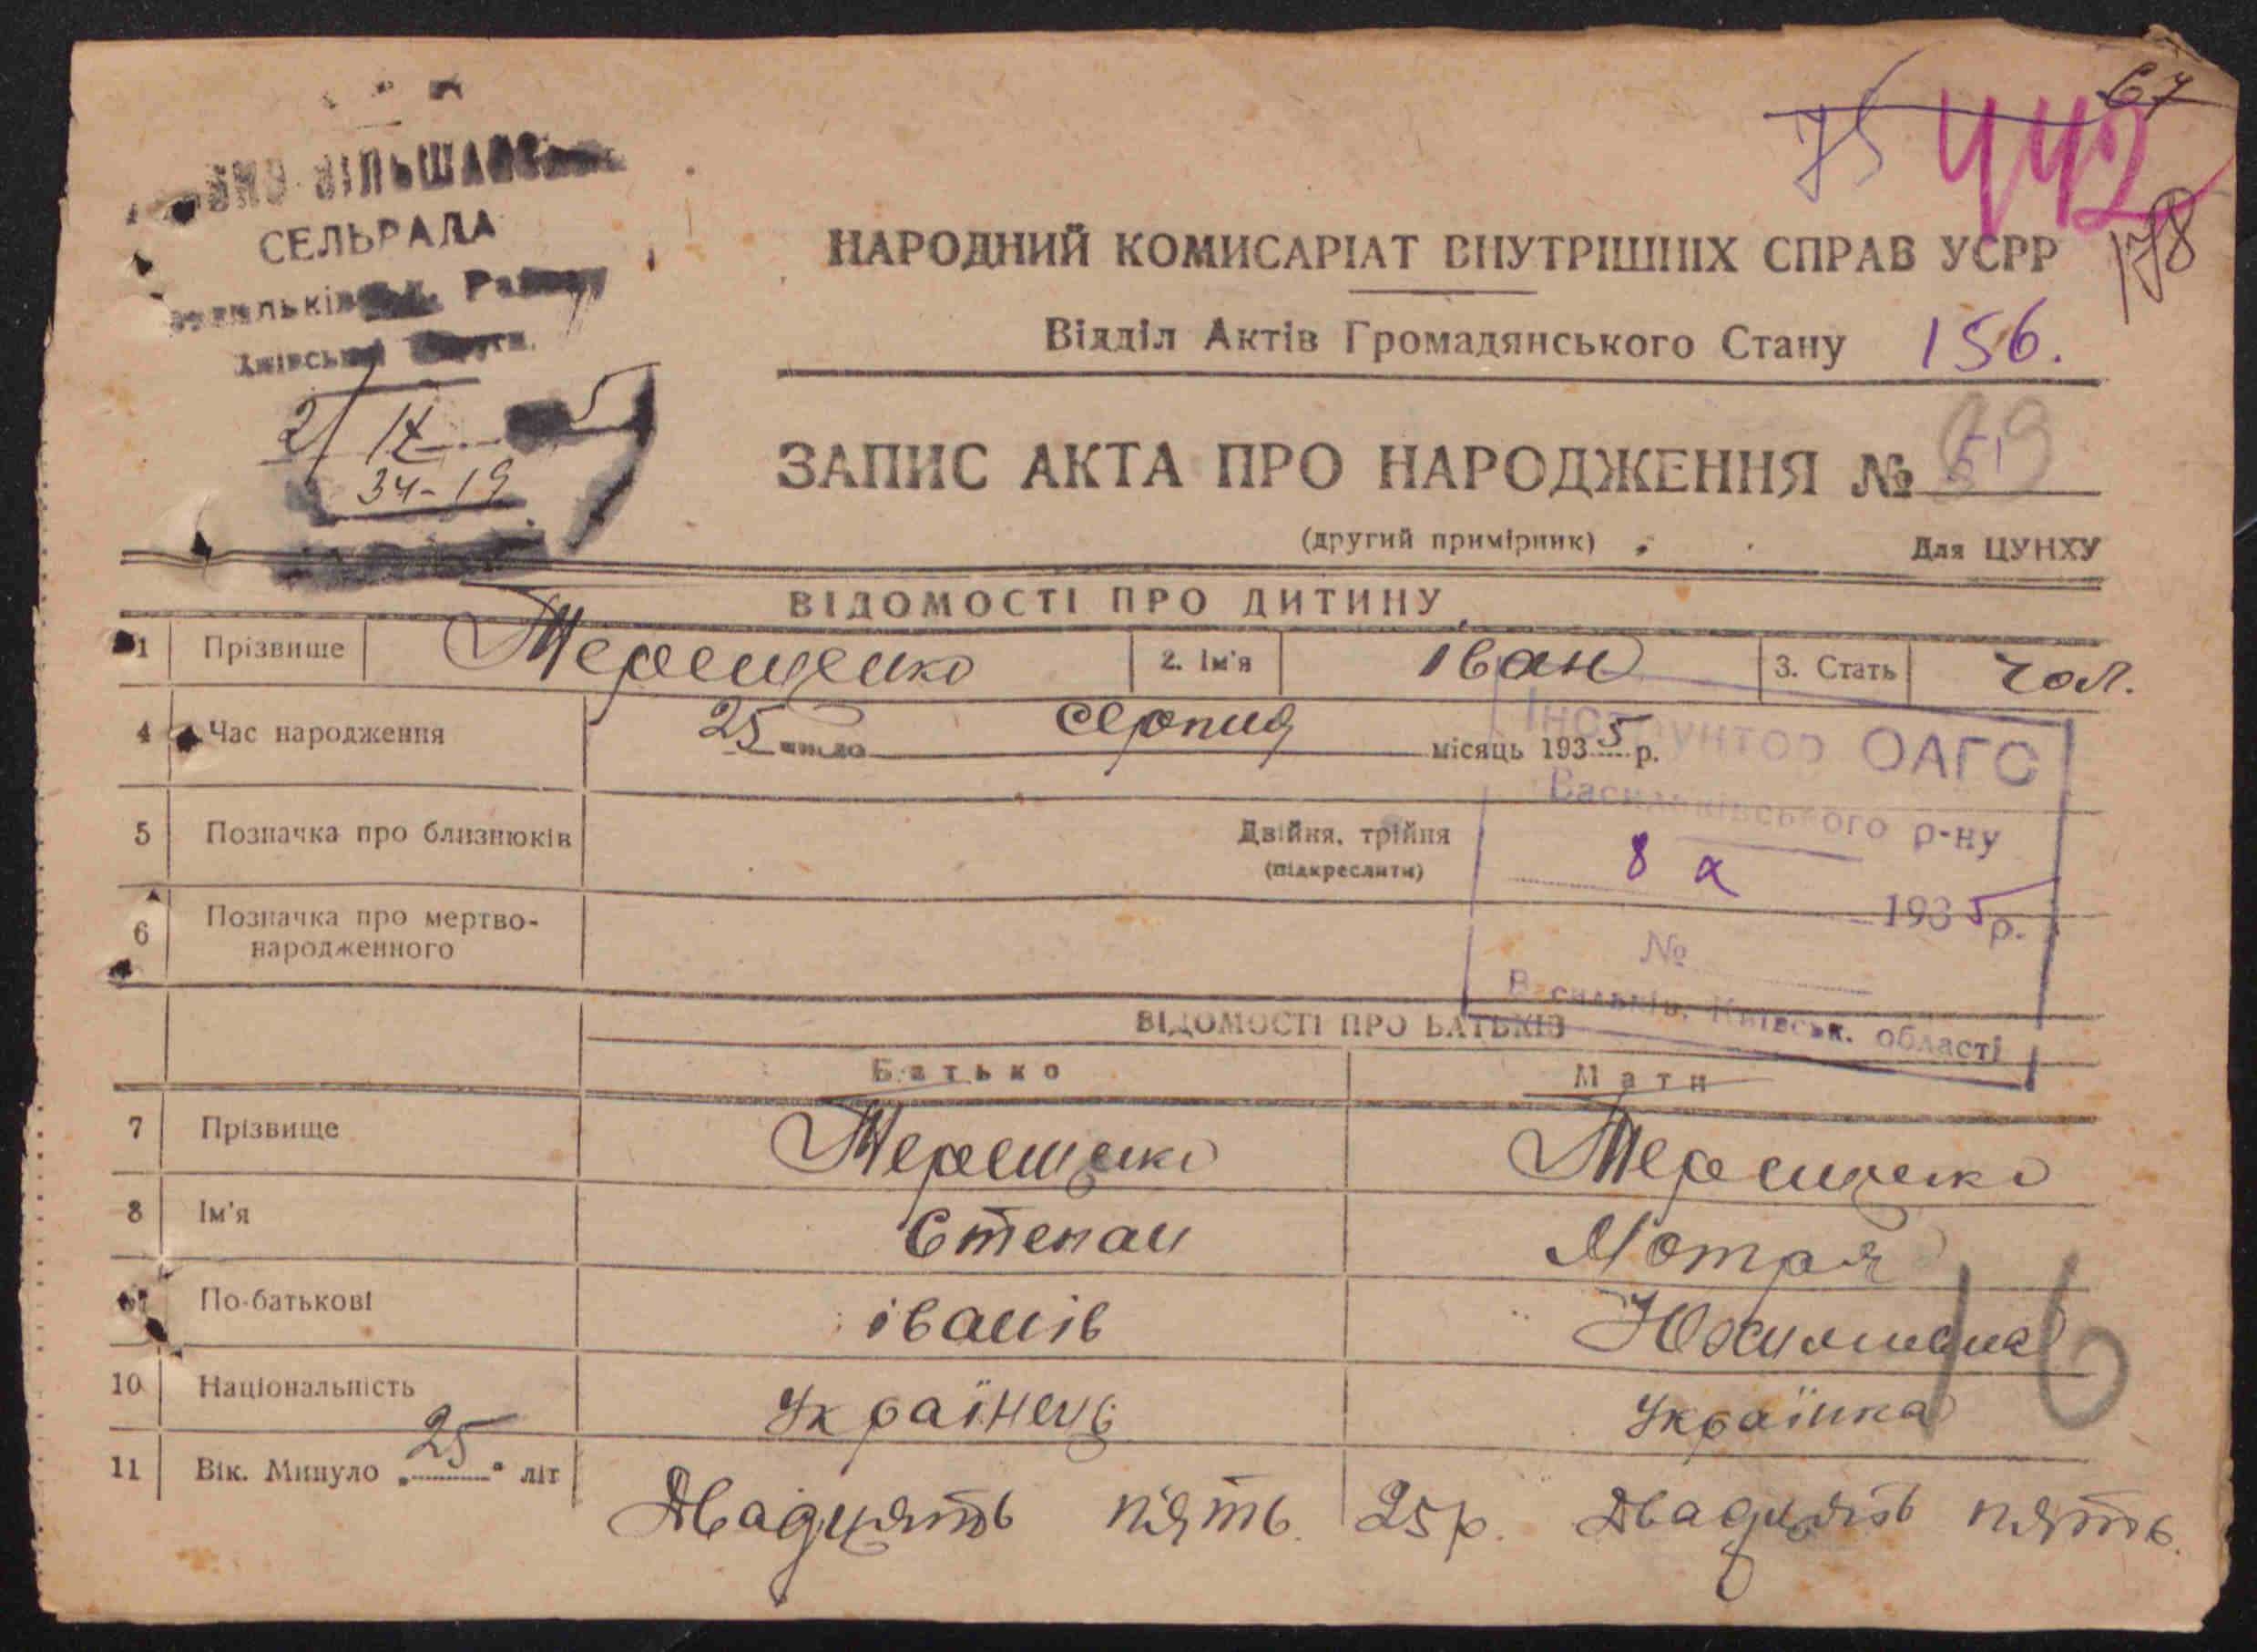 67
75 442
178
СЕЛЬРАДА
НАРОДНИЙ КОМИСАРІАТ ВНУТРІШНІХ СПРАВ УСРР
Відділ Актів Громадянського Стану 156.
34-19
ЗАПИС АКТА ПРО НАРОДЖЕННЯ № 51 99
(другий примірник) Для ЦУНХУ
ВІДОМОСТІ ПРО ДИТИНУ
1 Прізвище Терещенко 2. Ім'я Іван 3. Стать чол.
4 Час народження 25 число серпня місяць 1935 р.
Інструктор ОАГС
Васильківського р-ну
8 X 1935 р.
№
Васильків, Київськ. області
5 Позначка про близнюків Двійня, трійня
(підкреслити)
6 Позначка про мертво-
народженного
ВІДОМОСТІ ПРО БАТЬКІВ
Батько Мати
7 Прізвище Терещенко Терещенко
8 Ім'я Степан Мотря
По-батькові іванів Юхимівна
16
10 Національність Українець Українка
11 Вік. Минуло „25" літ Двадцять пять. 25 р. Двадцять пять.